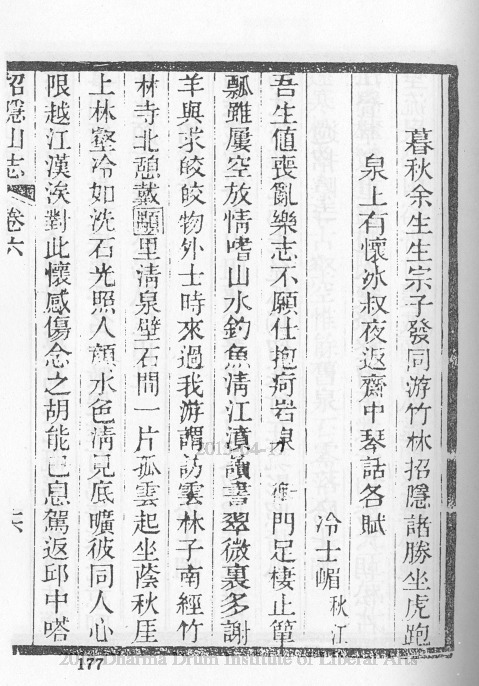 暮秋余生生宗子發同游竹林招隱諸勝坐虎跑
泉上有懷冰叔夜返齋中琴話各賦
冷士嵋秋江
吾生值喪亂樂志不願仕抱疴岩泉 衡門足棲止簞
瓢雖屢空放情嗜山水釣魚清江濆讀書翠微裏多謝
羊與求皎皎物外士時來過我游謂訪雲林子南經竹
林寺北憩戴顒里清泉壁石間一片孤雲起坐蔭秋厓
上林壑冷如洗石光照人顏水色清見底曠彼同人心
限越江漢涘對此懷感傷念之胡能已息駕返邱中嗒
招隱山志 卷六
177
Dharma Drum Institute of Liberal Arts